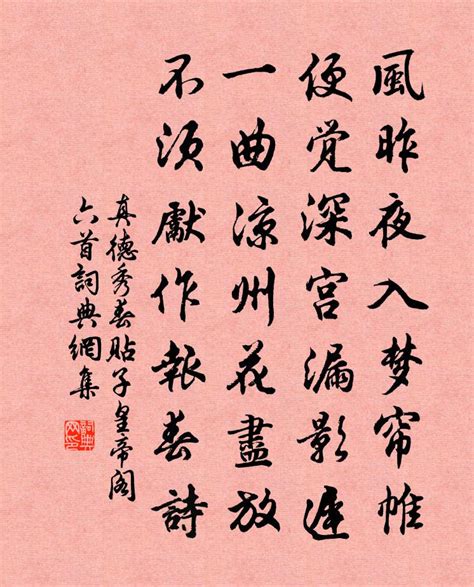 風昨夜入梦帘帷
便觉深宫漏影遲
一曲凉州花盡放
不须獻作報春詩
真德秀春貼子皇帝阁
六首詞典網集